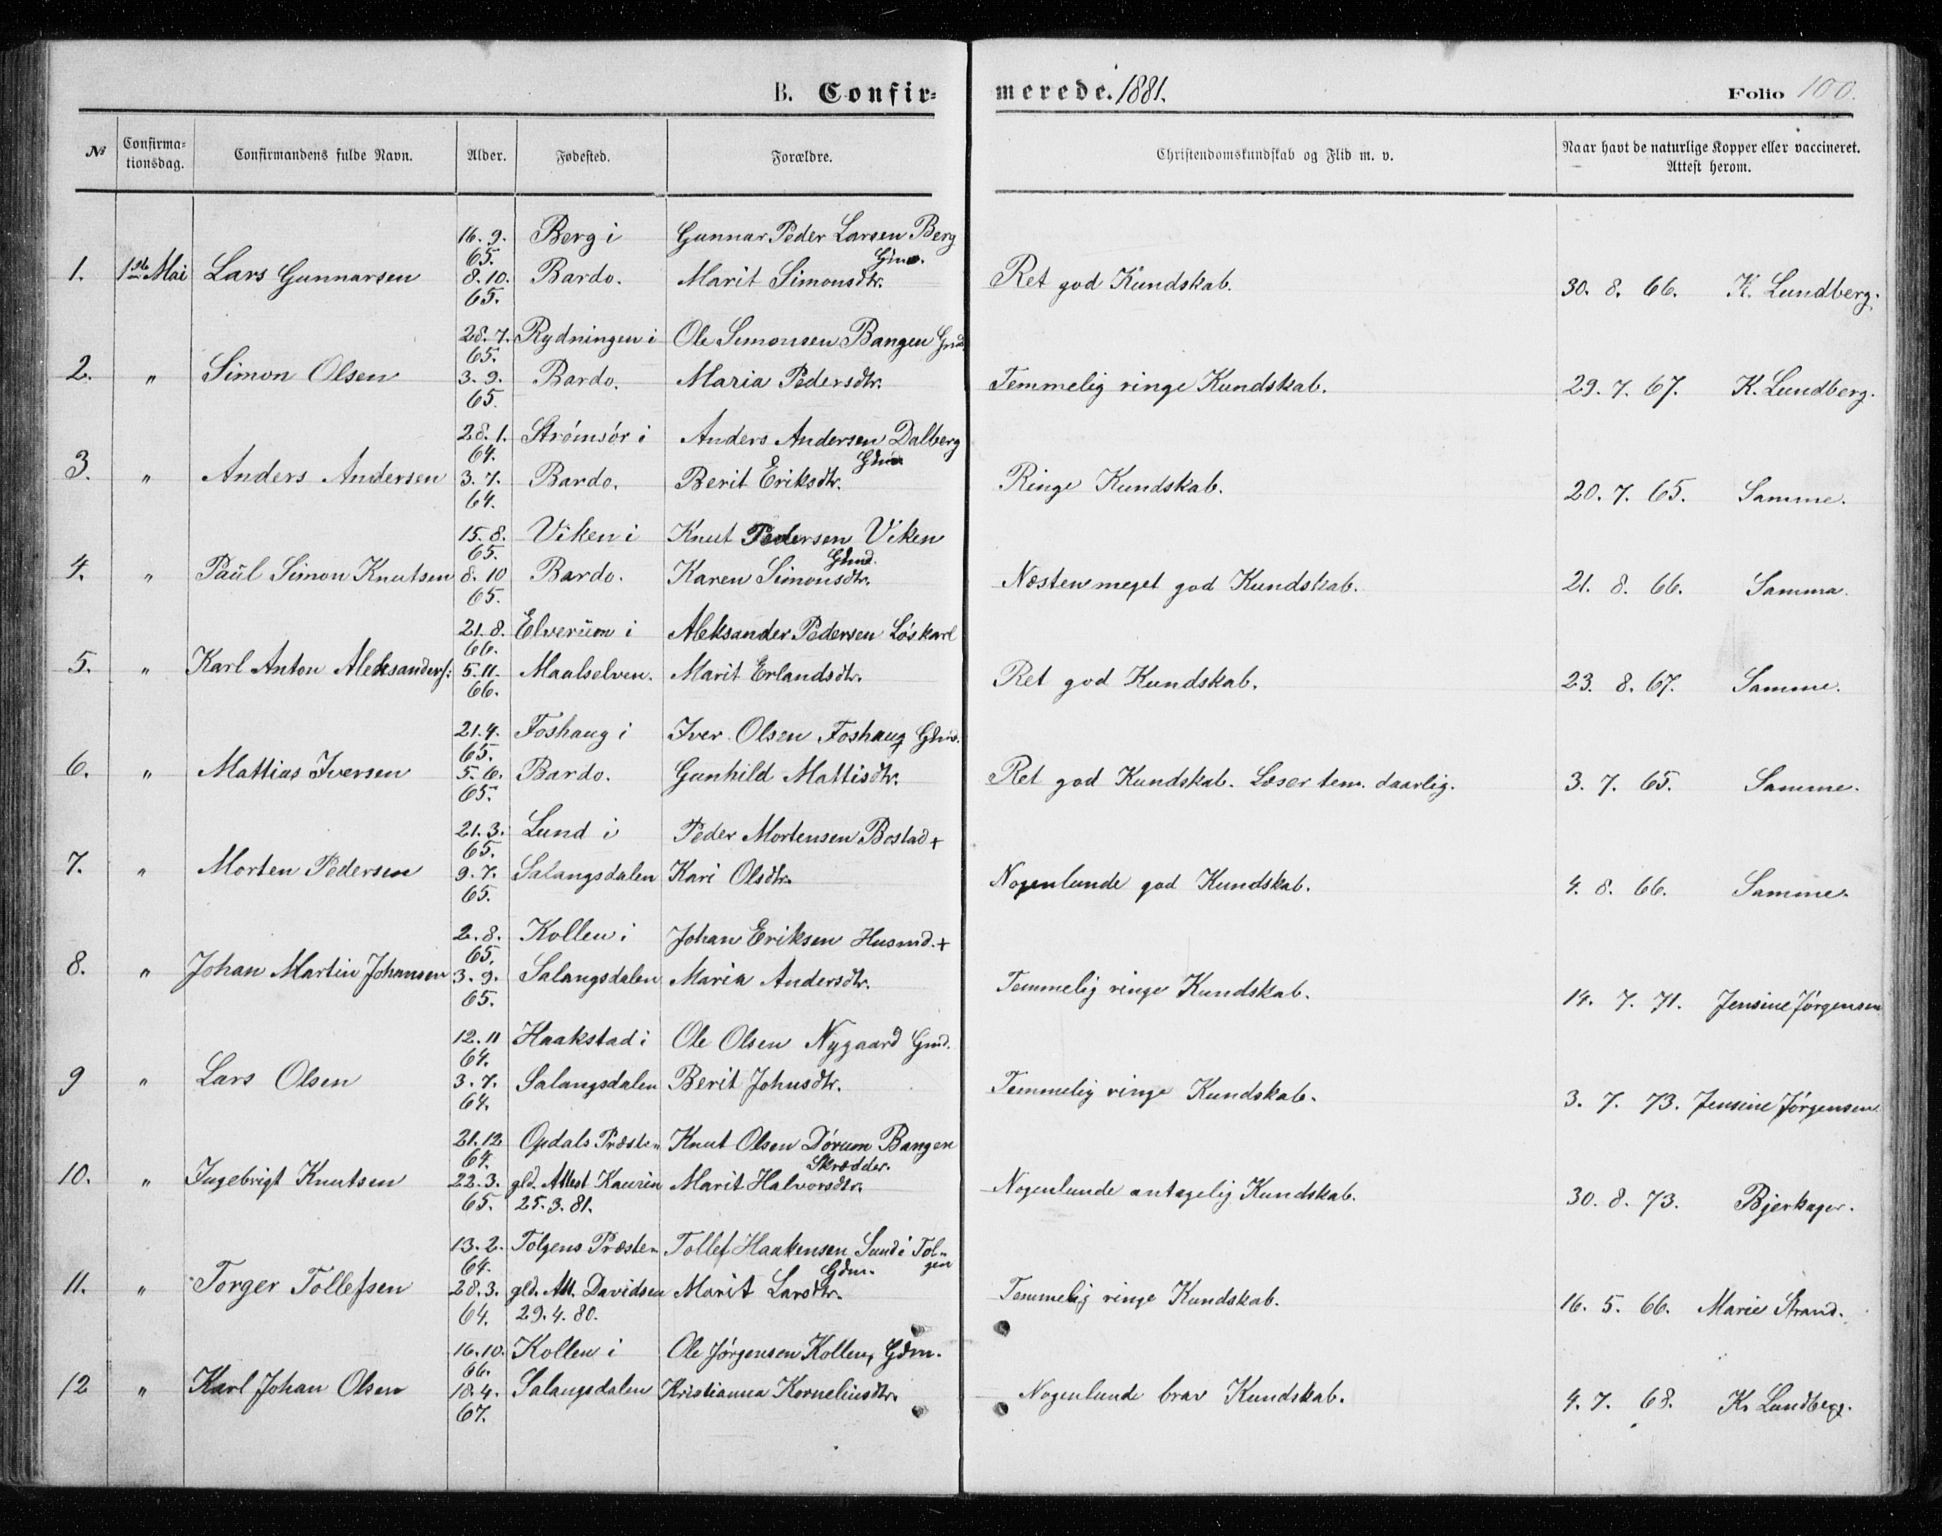 B. Confir-
merede. 1881.
Folio 100.
№
Confirma-
tionsdag.
Confirmandens fulde Navn.
Alder.
Fødested.
Forældre.
Christendomskundskab og Flid m. v.
Naar havt de naturlige Kopper eller vaccineret.
Attest herom.
16. 9. Berg i Gunnar Peder Larsen Berg
65. Gmd.
1. 1ste Mai Lars Gunnarsen 8. 10. Bardo. Marit Simonsdtr. Ret god Kundskab. 30. 8. 66. K. Lundberg.
65.
28. 7. Rydningen i Ole Simonsen Bangen Gmd.
65.
2. " Simon Olsen 3. 9. Bardo. Maria Pedersdtr. Temmelig ringe Kundskab. 29. 7. 67. K. Lundberg.
65.
28. 1. Strømsør i Anders Andersen Dalberg
64. Gdm.
3. " Anders Andersen 3. 7. Bardo. Berit Eriksdtr. Ringe Kundskab. 20. 7. 65. Samme.
64.
15. 8. Viken i Knut Pedersen Viken
65. Gdmd.
4. " Paul Simon Knutsen 8. 10 Bardo. Karen Simonsdtr. Næsten meget god Kundskab. 21. 8. 66. Samma.
65.
21. 8. Elverum i Aleksander Pedersen Løskarl
66.
5. " Karl Anton Aleksanders: 5. 11. Maalselven. Marit Erlandsdtr. Ret god Kundskab. 23. 8. 67. Samme.
66.
21. 4. Foshaug i Iver Olsen Foshaug Gdmd.
65.
6. " Mattias Iversen 5. 6. Bardo. Gunhild Mattisdtr. Ret god Kundskab. Læser tem. daarlig. 3. 7. 65. Samme.
65.
21. 3. Lund i Peder Mortensen Bostad +
65.
7. " Morten Pedersen 9. 7. Salangsdalen Kari Olsdtr. Nogenlunde god Kundskab. 4. 8. 66. Samme.
65.
2. 8. Kollen i Johan Eriksen Husmd. +
65.
8. " Johan Martin Johansen 3. 9. Salangsdalen Maria Andersdtr. Temmelig ringe Kundskab. 14. 7. 71. Jensine Jørgensen
65.
12. 11 Haakstad i Ole Olsen Nygaard Gmd.
64.
9 " Lars Olsen 3. 7. Salangsdalen Berit Johnsdtr. Temmelig ringe Kundskab. 3. 7. 73. Jensine Jørgensen
64.
21. 12 Opdals Præste" Knut Olsen Dørum Bangen
64. Skrædder.
10. " Ingebrigt Knutsen 22. 3. gld. Attest Kaurin Marit Halvorsdtr. Nogenlunde antagelig Kundskab. 30. 8. 73. Bjerkager.
65. 25. 3. 81.
13. 2. Tolgens Præste" Tollef Haakensen Sund i Tol-
64. Gdm. gen
11. " Torger Tollefsen 28. 3. gld. Att. Davidsen Marit Larsdtr. Temmelig ringe Kundskab. 16. 5. 66. Marie Strand.
64. 29. 4. 80.
16. 10. Kollen i Ole Jørgensen Kollen, Gdm.
66.
12 " Karl Johan Olsen 10. 4. Salangsdalen Kristianna Korneliusdtr. Nogenlunde brav Kundskab. 4. 7. 68. K. Lundberg.
67.